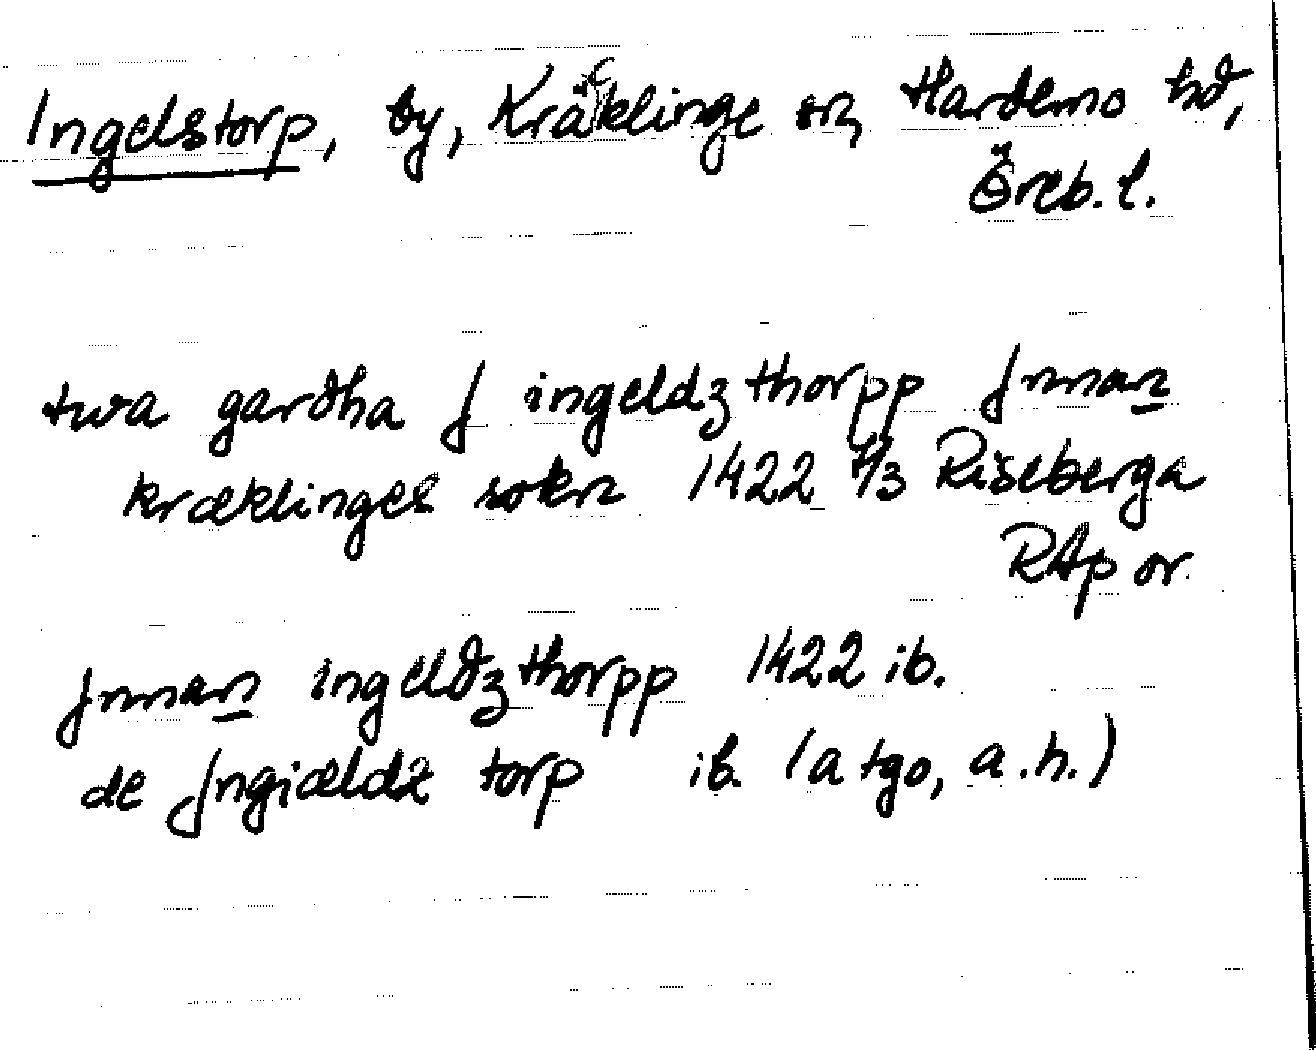 Ingelstorp, by, Kräcklinge sn, Hardemo hd,
Öreb. l.
twa gardha J ingeldzthorpp Jnnan
kræklinges sokn 1422 1/3 Riseberga
RAp or.
Jnnan ingeldzthorpp 1422 ib.
de Jngiældz torp ib. (a tgo, a.h.)